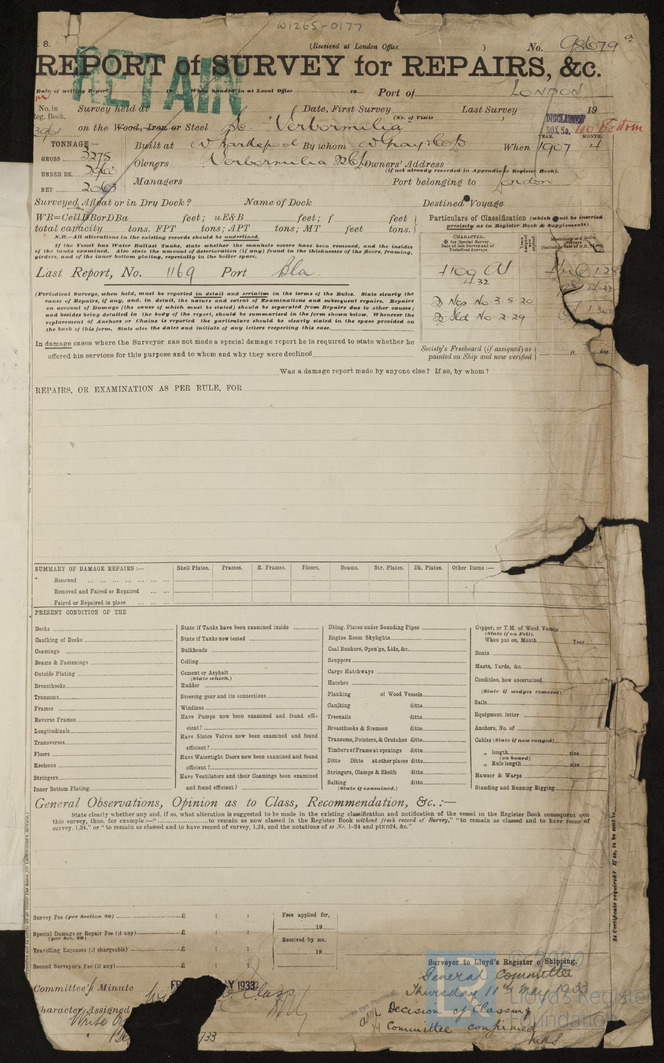 W1265-0177
8.
(Received at London Office
)
No. 98679
REPORT of SURVEY for REPAIRS, &c.
RETAIN
Date of writing Report
When handed in at Local Office
19
Port of LONDON
No. in Reg. Book.
Survey held at
Date, First Survey
Last Survey
19
(No. of Visits
on the Wood, Iron or Steel
Verbormilia
DISCLASSED
No Bottom
TONNAGE:—
GROSS 3275
UNDER DK.
NET
Built at W Hartlepool By whom W Gray & Co Ld When 1907 4
YEAR. MONTH.
Owners Verbormilia
Owners' Address
(if not already recorded in Appendix to Register Book).
Managers
Port belonging to London
Surveyed Afloat or in Dry Dock?
Name of Dock
Destined Voyage
WB=CellDBorDBa feet; uE&B feet; f feet
total capacity tons. FPT tons; APT tons; MT feet tons.
Particulars of Classification (which must be inserted precisely as in Register Book & Supplements)
N.B.—All alterations in the existing records should be underlined.
If the Vessel has Water Ballast Tanks, state whether the manhole covers have been removed, and the insides of the tanks examined. Also state the amount of deterioration (if any) found in the thicknesses of the floors, framing, girders, and of the inner bottom plating, especially in the boiler space.
CHARACTER.
for Special Survey.
Last Report, No. 1169 Port Bla
+100 A1
(Periodical Surveys, when held, must be reported in detail and seriatim in the terms of the Rules. State clearly the cause of Repairs, if any, and, in detail, the nature and extent of Examinations and subsequent repairs. Repairs on account of Damage (the cause of which must be stated) should be separated from Repairs due to other causes; and besides being detailed in the body of the report, should be summarised in the form shown below. Whenever the replacement of Anchors or Chains is reported the particulars should be clearly stated in the space provided on the back of this form. State also the dates and initials of any letters respecting this case.
No. 3-5.20
No. 2.29
In damage cases where the Surveyor has not made a special damage report he is required to state whether he
offered his services for this purpose and to whom and why they were declined
Society's Freeboard (if assigned) as painted on Ship and now verified
Was a damage report made by anyone else? If so, by whom?
REPAIRS, OR EXAMINATION AS PER RULE, FOR
SUMMARY OF DAMAGE REPAIRS:—
Shell Plates. Frames. R. Frames. Floors. Beams. Str. Plates. Dk. Plates. Other Items:—
Renewed
Removed and Faired or Repaired
Faired or Repaired in place
PRESENT CONDITION OF THE
Decks
Caulking of Decks
Coamings
Beams & Fastenings
Outside Plating
Breasthooks
Transoms
Frames
Reverse Frames
Longitudinals
Transverses
Floors
Keelsons
Stringers
Inner Bottom Plating
State if Tanks have been examined inside
State if Tanks now tested
Bulkheads
Ceiling
Cement or Asphalt
(State which.)
Rudder
Steering gear and its connections
Windlass
Have Pumps now been examined and found efficient?
Have Sluice Valves now been examined and found efficient?
Have Watertight Doors now been examined and found efficient?
Have Ventilators and their Coamings been examined and found efficient?
Dblng. Plates under Sounding Pipes
Engine Room Skylights
Coal Bunkers, Open'gs, Lids, &c.
Scuppers
Cargo Hatchways
Hatches
Planking of Wood Vessels
Caulking ditto
Treenails ditto
Breasthooks & Stemson ditto
Transoms, Pointers, & Crutches ditto
Timbers of Frame at openings ditto
Ditto Ditto at other places ditto
Stringers, Clamps & Shelfs ditto
Salting ditto
(State if examined.)
Copper, or Y.M. of Wood Vessels
(State if on Felt).
When put on, Month Year
Boats
Masts, Yards, &c.
Condition, how ascertained
(State if wedges removed)
Sails
Equipment letter
Anchors, No. of
Cables (State if now ranged)
„ length size
(on board)
„ Rule length size
Hawser & Warps
Standing and Running Rigging
General Observations, Opinion as to Class, Recommendation, &c.:—
State clearly whether any, and if so, what alteration is suggested to be made in the existing classification and notification of the vessel in the Register Book consequent upon
this survey, thus, for example:—" to remain as now classed in the Register Book without fresh record of Survey," "to remain as classed and to have record of
survey, 1,24," or "to remain as classed and to have record of survey, 1,24, and the notations of ss No. 1-24 and pinD24, &c."
Is Certificate required? If so, to be sent to
Survey Fee (per Section 29) £ : :
Special Damage or Repair Fee (if any) £ : :
(per Sec. 29)
Travelling Expenses (if chargeable) £ : :
Second Surveyor's Fee (if any) £ : :
Fees applied for,
19
Received by me,
19
Surveyor to Lloyd's Register of Shipping.
Committee's Minute
1933
Class
Character Assigned
General Committee
Thursday 11th May 1933
Decision of Classing
Committee confirmed
© 2020
Lloyd's Register
Foundation